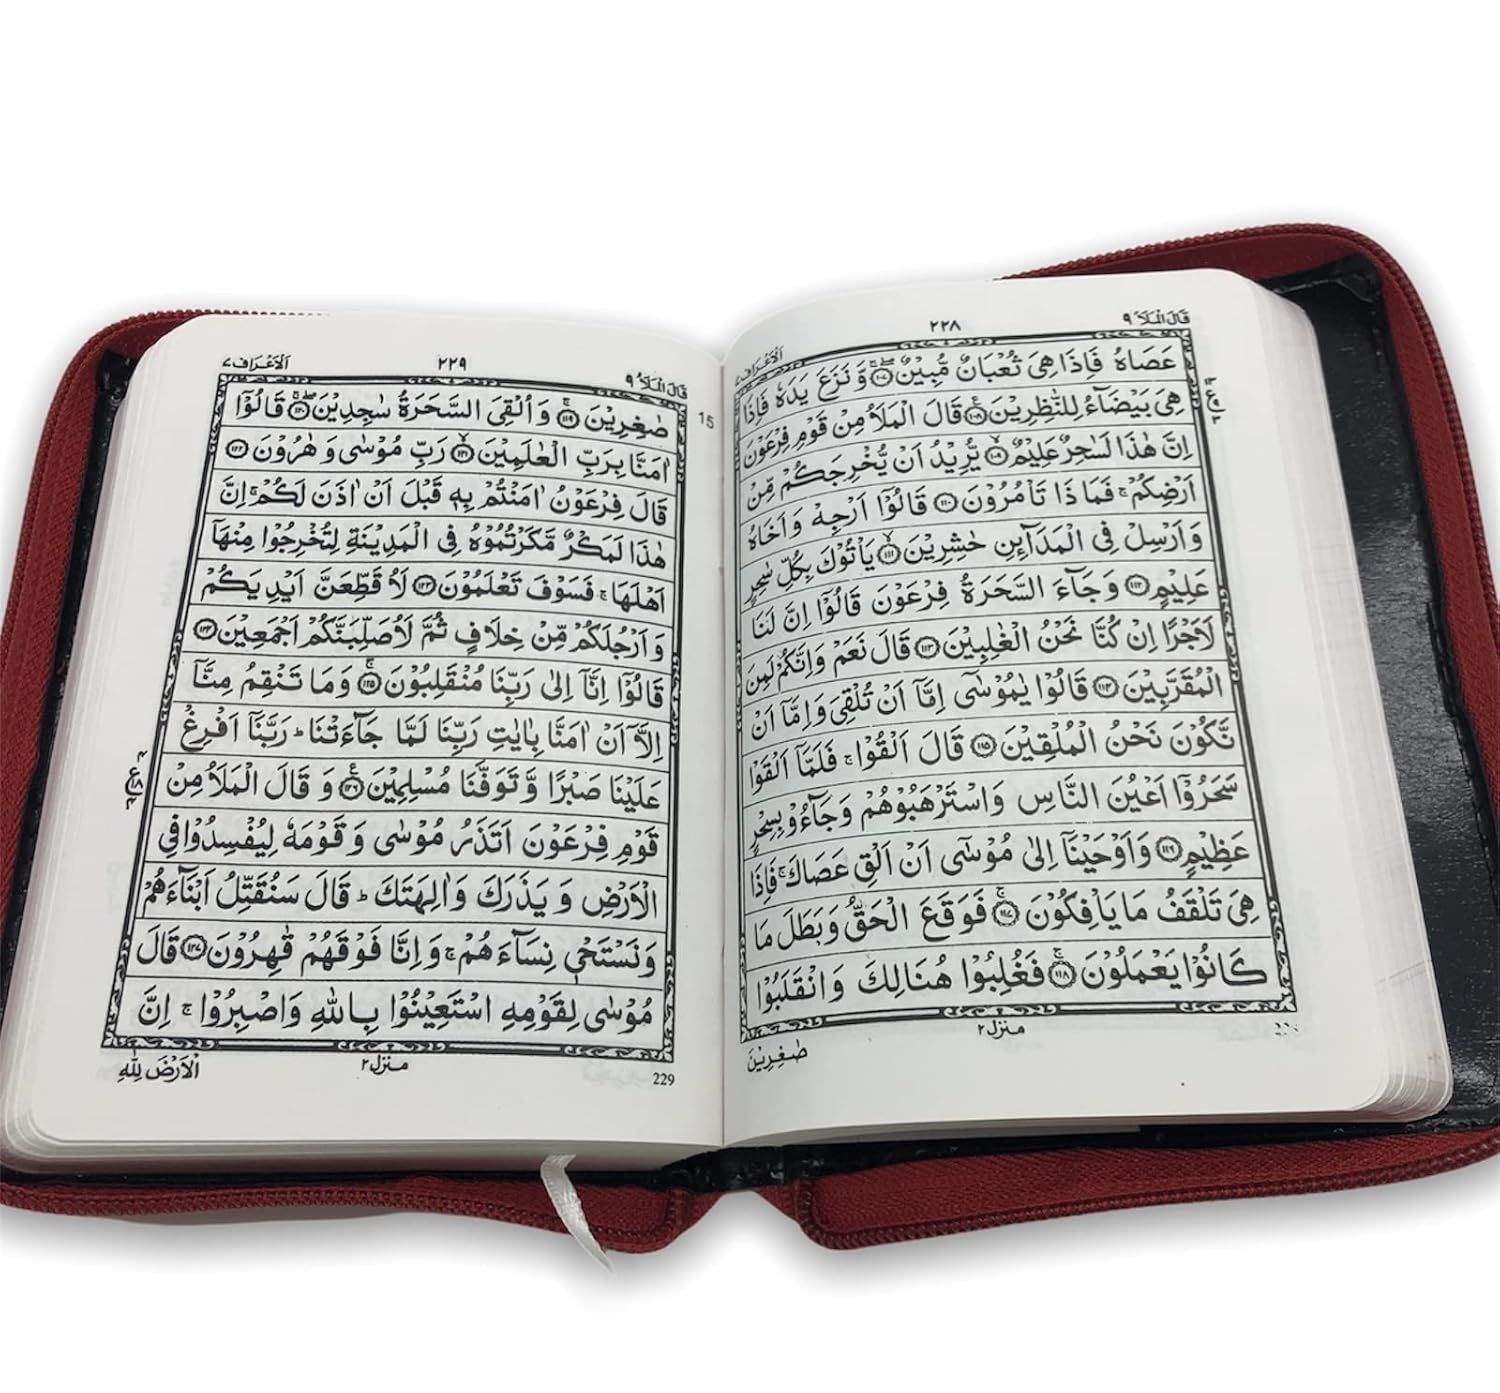 قَالَ الْمَلَاُ ٩
٢٢٨
اَلْاَعْرَاف ٧
عَصَاهُ فَاِذَا هِىَ ثُعْبَانٌ مُّبِيْنٌ ۚۖ‏ ﴿۱۰۷﴾ وَّ نَزَعَ يَدَهٗ فَاِذَا
هِىَ بَيْضَآءُ لِلنّٰظِرِيْنَ ﴿۱۰۸﴾ قَالَ الْمَلَاُ مِنْ قَوْمِ فِرْعَوْنَ
اِنَّ هٰذَا لَسٰحِرٌ عَلِيْمٌ ۙ‏ ﴿۱۰۹﴾ يُّرِيْدُ اَنْ يُّخْرِجَكُمْ مِّنْ
اَرْضِكُمْ ۚ فَمَا ذَا تَاْمُرُوْنَ ﴿۱۱۰﴾ قَالُوْۤا اَرْجِهْ وَاَخَاهُ
وَاَرْسِلْ فِى الْمَدَآئِنِ حٰشِرِيْنَ ۙ‏ ﴿۱۱۱﴾ يَاْتُوْكَ بِكُلِّ سٰحِرٍ
عَلِيْمٍ ﴿۱۱۲﴾ وَجَآءَ السَّحَرَةُ فِرْعَوْنَ قَالُوْۤا اِنَّ لَنَا
لَاَجْرًا اِنْ كُنَّا نَحْنُ الْغٰلِبِيْنَ ﴿۱۱۳﴾ قَالَ نَعَمْ وَاِنَّكُمْ لَمِنَ
الْمُقَرَّبِيْنَ ﴿۱۱۴﴾ قَالُوْا يٰمُوْسٰٓى اِمَّاۤ اَنْ تُلْقِىَ وَاِمَّاۤ اَنْ
نَّكُوْنَ نَحْنُ الْمُلْقِيْنَ ﴿۱۱۵﴾ قَالَ اَلْقُوْا ۚ فَلَمَّاۤ اَلْقَوْا
سَحَرُوْۤا اَعْيُنَ النَّاسِ وَاسْتَرْهَبُوْهُمْ وَجَآءُوْ بِسِحْرٍ
عَظِيْمٍ ﴿۱۱۶﴾ وَاَوْحَيْنَاۤ اِلٰى مُوْسٰٓى اَنْ اَلْقِ عَصَاكَ ۚ فَاِذَا
هِىَ تَلْقَفُ مَا يَاْفِكُوْنَ ۚ‏ ﴿۱۱۷﴾ فَوَقَعَ الْحَقُّ وَبَطَلَ مَا
كَانُوْا يَعْمَلُوْنَ ۚ‏ ﴿۱۱۸﴾ فَغُلِبُوْا هُنَالِكَ وَانْقَلَبُوْا
منزل ٢
صٰغِرِيْنَ
قَالَ الْمَلَاُ ٩
٢٢٩
اَلْاَعْرَاف ٧
15
صٰغِرِيْنَ ۚ‏ ﴿۱۱۹﴾ وَاُلْقِىَ السَّحَرَةُ سٰجِدِيْنَ ۚۖ‏ ﴿۱۲۰﴾ قَالُوْۤا
اٰمَنَّا بِرَبِّ الْعٰلَمِيْنَ ۙ‏ ﴿۱۲۱﴾ رَبِّ مُوْسٰى وَهٰرُوْنَ ﴿۱۲۲﴾
قَالَ فِرْعَوْنُ اٰمَنْتُمْ بِهٖ قَبْلَ اَنْ اٰذَنَ لَكُمْ ۚ اِنَّ
هٰذَا لَمَكْرٌ مَّكَرْتُمُوْهُ فِى الْمَدِيْنَةِ لِتُخْرِجُوْا مِنْهَاۤ
اَهْلَهَا ۚ فَسَوْفَ تَعْلَمُوْنَ ﴿۱۲۳﴾ لَاُقَطِّعَنَّ اَيْدِيَكُمْ
وَاَرْجُلَكُمْ مِّنْ خِلَافٍ ثُمَّ لَاُصَلِّبَنَّكُمْ اَجْمَعِيْنَ ﴿۱۲۴﴾
قَالُوْۤا اِنَّاۤ اِلٰى رَبِّنَا مُنْقَلِبُوْنَ ۚ‏ ﴿۱۲۵﴾ وَمَا تَنْقِمُ مِنَّاۤ
اِلَّاۤ اَنْ اٰمَنَّا بِاٰيٰتِ رَبِّنَا لَمَّا جَآءَتْنَا ؕ رَبَّنَاۤ اَفْرِغْ
عَلَيْنَا صَبْرًا وَّتَوَفَّنَا مُسْلِمِيْنَ ﴿۱۲۶﴾ وَقَالَ الْمَلَاُ مِنْ
قَوْمِ فِرْعَوْنَ اَتَذَرُ مُوْسٰى وَقَوْمَهٗ لِيُفْسِدُوْا فِى
الْاَرْضِ وَيَذَرَكَ وَاٰلِهَتَكَ ؕ قَالَ سَنُقَتِّلُ اَبْنَآءَهُمْ
وَنَسْتَحْىٖ نِسَآءَهُمْ ۚ وَاِنَّا فَوْقَهُمْ قٰهِرُوْنَ ﴿۱۲۷﴾ قَالَ
مُوْسٰى لِقَوْمِهِ اسْتَعِيْنُوْا بِاللّٰهِ وَاصْبِرُوْا ۚ اِنَّ
منزل ٢
229
الْاَرْضَ لِلّٰهِ